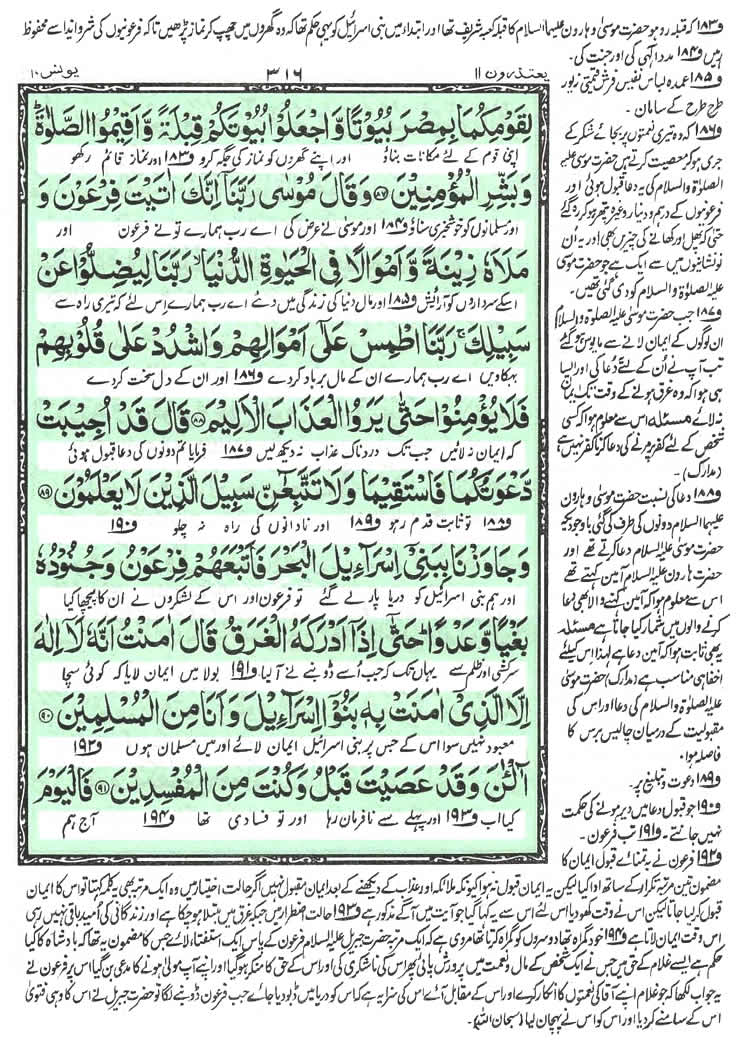 و۱۸۳ کہ قبلہ رو ہو حضرت موسیٰ و ہارون علیہما السلام کا قبلہ کعبہ شریف تھا اور ابتداء میں بنی اسرائیل کو یہی حکم تھا کہ وہ گھروں میں چھپ کر نماز پڑھیں تاکہ فرعونیوں کی شر و ایذا سے محفوظ
رہیں و۱۸۴ مدد الٰہی کی اور جنت کی۔
یعتذرون ۱۱
۳۱۶
یونس ۱۰
لِقَوْمِكُمَا بِمِصْرَ بُيُوتًا وَّاجْعَلُوْا بُيُوْتَكُمْ قِبْلَةً وَّاَقِيْمُوا الصَّلٰوةَ ؕ
اپنی قوم کے لئے مکانات بناؤ اور اپنے گھروں کو نماز کی جگہ کرو و۱۸۳ اور نماز قائم رکھو
وَبَشِّرِ الْمُؤْمِنِيْنَ ۸۷ وَقَالَ مُوْسٰى رَبَّنَاۤ اِنَّكَ اٰتَيْتَ فِرْعَوْنَ وَ
اور مسلمانوں کو خوشخبری سناؤ و۱۸۴ اور موسیٰ نے عرض کی اے رب ہمارے تو نے فرعون اور
مَلَاَهٗ زِيْنَةً وَّاَمْوَالًا فِى الْحَيٰوةِ الدُّنْيَا ۙ رَبَّنَا لِيُضِلُّوْا عَنْ
اسکے سرداروں کو آرایش و۱۸۵ اور مال دنیا کی زندگی میں دئے اے رب ہمارے اس لئے کہ تیری راہ سے
سَبِيْلِكَ ۚ رَبَّنَا اطْمِسْ عَلٰٓى اَمْوَالِهِمْ وَاشْدُدْ عَلٰى قُلُوْبِهِمْ
بہکاویں اے رب ہمارے ان کے مال برباد کر دے و۱۸۶ اور ان کے دل سخت کر دے
فَلَا يُؤْمِنُوْا حَتّٰى يَرَوُا الْعَذَابَ الْاَلِيْمَ ۸۸ قَالَ قَدْ اُجِيْبَتْ
کہ ایمان نہ لائیں جب تک دردناک عذاب نہ دیکھ لیں و۱۸۷ فرمایا تم دونوں کی دعا قبول ہوئی
دَّعْوَتُكُمَا فَاسْتَقِيْمَا وَلَا تَتَّبِعٰٓنِّ سَبِيْلَ الَّذِيْنَ لَا يَعْلَمُوْنَ ۸۹
و۱۸۸ تو ثابت قدم رہو و۱۸۹ اور نادانوں کی راہ نہ چلو و۱۹۰
وَجَاوَزْنَا بِبَنِىْۤ اِسْرَآءِيْلَ الْبَحْرَ فَاَتْبَعَهُمْ فِرْعَوْنُ وَجُنُوْدُهٗ
اور ہم بنی اسرائیل کو دریا پار لے گئے تو فرعون اور اس کے لشکروں نے ان کا پیچھا کیا
بَغْيًا وَّعَدْوًا ؕ حَتّٰۤى اِذَاۤ اَدْرَكَهُ الْغَرَقُ ۙ قَالَ اٰمَنْتُ اَنَّهٗ لَاۤ اِلٰهَ
سرکشی اور ظلم سے یہاں تک کہ جب اُسے ڈوبنے نے آ لیا و۱۹۱ بولا میں ایمان لایا کہ کوئی سچا
اِلَّا الَّذِىْۤ اٰمَنَتْ بِهٖ بَنُوْۤا اِسْرَآءِيْلَ وَاَنَا مِنَ الْمُسْلِمِيْنَ ۹۰
معبود نہیں سوا اس کے جس پر بنی اسرائیل ایمان لائے اور میں مسلمان ہوں و۱۹۲
آٰلْـٰٔنَ وَقَدْ عَصَيْتَ قَبْلُ وَكُنْتَ مِنَ الْمُفْسِدِيْنَ ۹۱ فَالْيَوْمَ
کیا اب و۱۹۳ اور پہلے سے نافرمان رہا اور تو فسادی تھا و۱۹۴ آج ہم
و۱۸۵ عمدہ لباس نفیس فرش قیمتی زیور
طرح طرح کے سامان۔
و۱۸۶ کہ وہ تیری نعمتوں پر بجائے شکر کے
جری ہو کر معصیت کرتے ہیں حضرت موسیٰ علیہ
الصلوٰۃ والسلام کی یہ دعا قبول ہوئی اور
فرعونیوں کے درہم و دینار وغیرہ پتھر ہو کر رہ گئے
حتیٰ کہ پھل اور کھانے کی چیزیں بھی اور یہ اُن
نو نشانیوں میں سے ایک ہے جو حضرت موسیٰ
علیہ الصلوٰۃ والسلام کو دی گئی تھیں۔
و۱۸۷ جب حضرت موسیٰ علیہ الصلوٰۃ والسلام
ان لوگوں کے ایمان لانے سے مایوس ہو گئے
تب آپ نے اُن کے لئے یہ دُعا کی اور ایسا
ہی ہوا کہ وہ غرق ہونے کے وقت تک ایمان
نہ لائے مسئلہ اس سے معلوم ہوا کہ کسی
شخص کے لئے کفر پر مرنے کی دعا کرنا کفر نہیں ہے
(مدارک)۔
و۱۸۸ دعا کی نسبت حضرت موسیٰ و ہارون
علیہما السلام دونوں کی طرف کی گئی باوجودیکہ
حضرت موسیٰ علیہ السلام دعا کرتے تھے اور
حضرت ہارون علیہ السلام آمین کہتے تھے
اس سے معلوم ہوا کہ آمین کہنے والا بھی دعا
کرنے والوں میں شمار کیا جاتا ہے مسئلہ
یہ بھی ثابت ہوا کہ آمین دعا ہے لہٰذا اس کیلئے
اخفا ہی مناسب ہے (مدارک) حضرت موسیٰ
علیہ الصلوٰۃ والسلام کی دعا اور اس کی
مقبولیت کے درمیان چالیس برس کا
فاصلہ ہوا۔
و۱۸۹ دعوت و تبلیغ پر۔
و۱۹۰ جو قبول دعا میں دیر ہونے کی حکمت
نہیں جانتے۔ و۱۹۱ تب فرعون۔
و۱۹۲ فرعون نے بہ تمنائے قبول ایمان کا
مضمون تین مرتبہ تکرار کے ساتھ ادا کیا لیکن یہ ایمان قبول نہ ہوا کیونکہ ملائکہ اور عذاب کے دیکھنے کے بعد ایمان مقبول نہیں اگر حالت اختیار میں وہ ایک مرتبہ بھی یہ کلمہ کہتا تو اس کا ایمان
قبول کر لیا جاتا لیکن اس نے وقت کھو دیا اس لئے اس سے یہ کہا گیا جو آیت میں آگے مذکور ہے و۱۹۳ حالت اضطرار میں جبکہ غرق میں مبتلا ہو چکا ہے اور زندگانی کی اُمید باقی نہیں رہی
اس وقت ایمان لاتا ہے و۱۹۴ خود گمراہ تھا دوسروں کو گمراہ کرتا تھا مروی ہے کہ ایک مرتبہ حضرت جبریل علیہ السلام فرعون کے پاس ایک استفتاء لائے جس کا مضمون یہ تھا کہ بادشاہ کا کیا
حکم ہے ایسے غلام کے حق میں جس نے ایک شخص کے مال و نعمت میں پرورش پائی پھر اس کی ناشکری کی اور اس کے حق کا منکر ہو گیا اور اپنے آپ مولیٰ ہونے کا مدعی بن گیا اس پر فرعون نے
یہ جواب لکھا کہ جو غلام اپنے آقا کی نعمتوں کا انکار کرے اور اس کے مقابل آئے اس کی سزا یہ ہے کہ اس کو دریا میں ڈبو دیا جائے جب فرعون ڈوبنے لگا تو حضرت جبریل نے اس کا وہی فتویٰ
اس کے سامنے کر دیا اور اس کو اس نے پہچان لیا (سبحان اللہ)۔